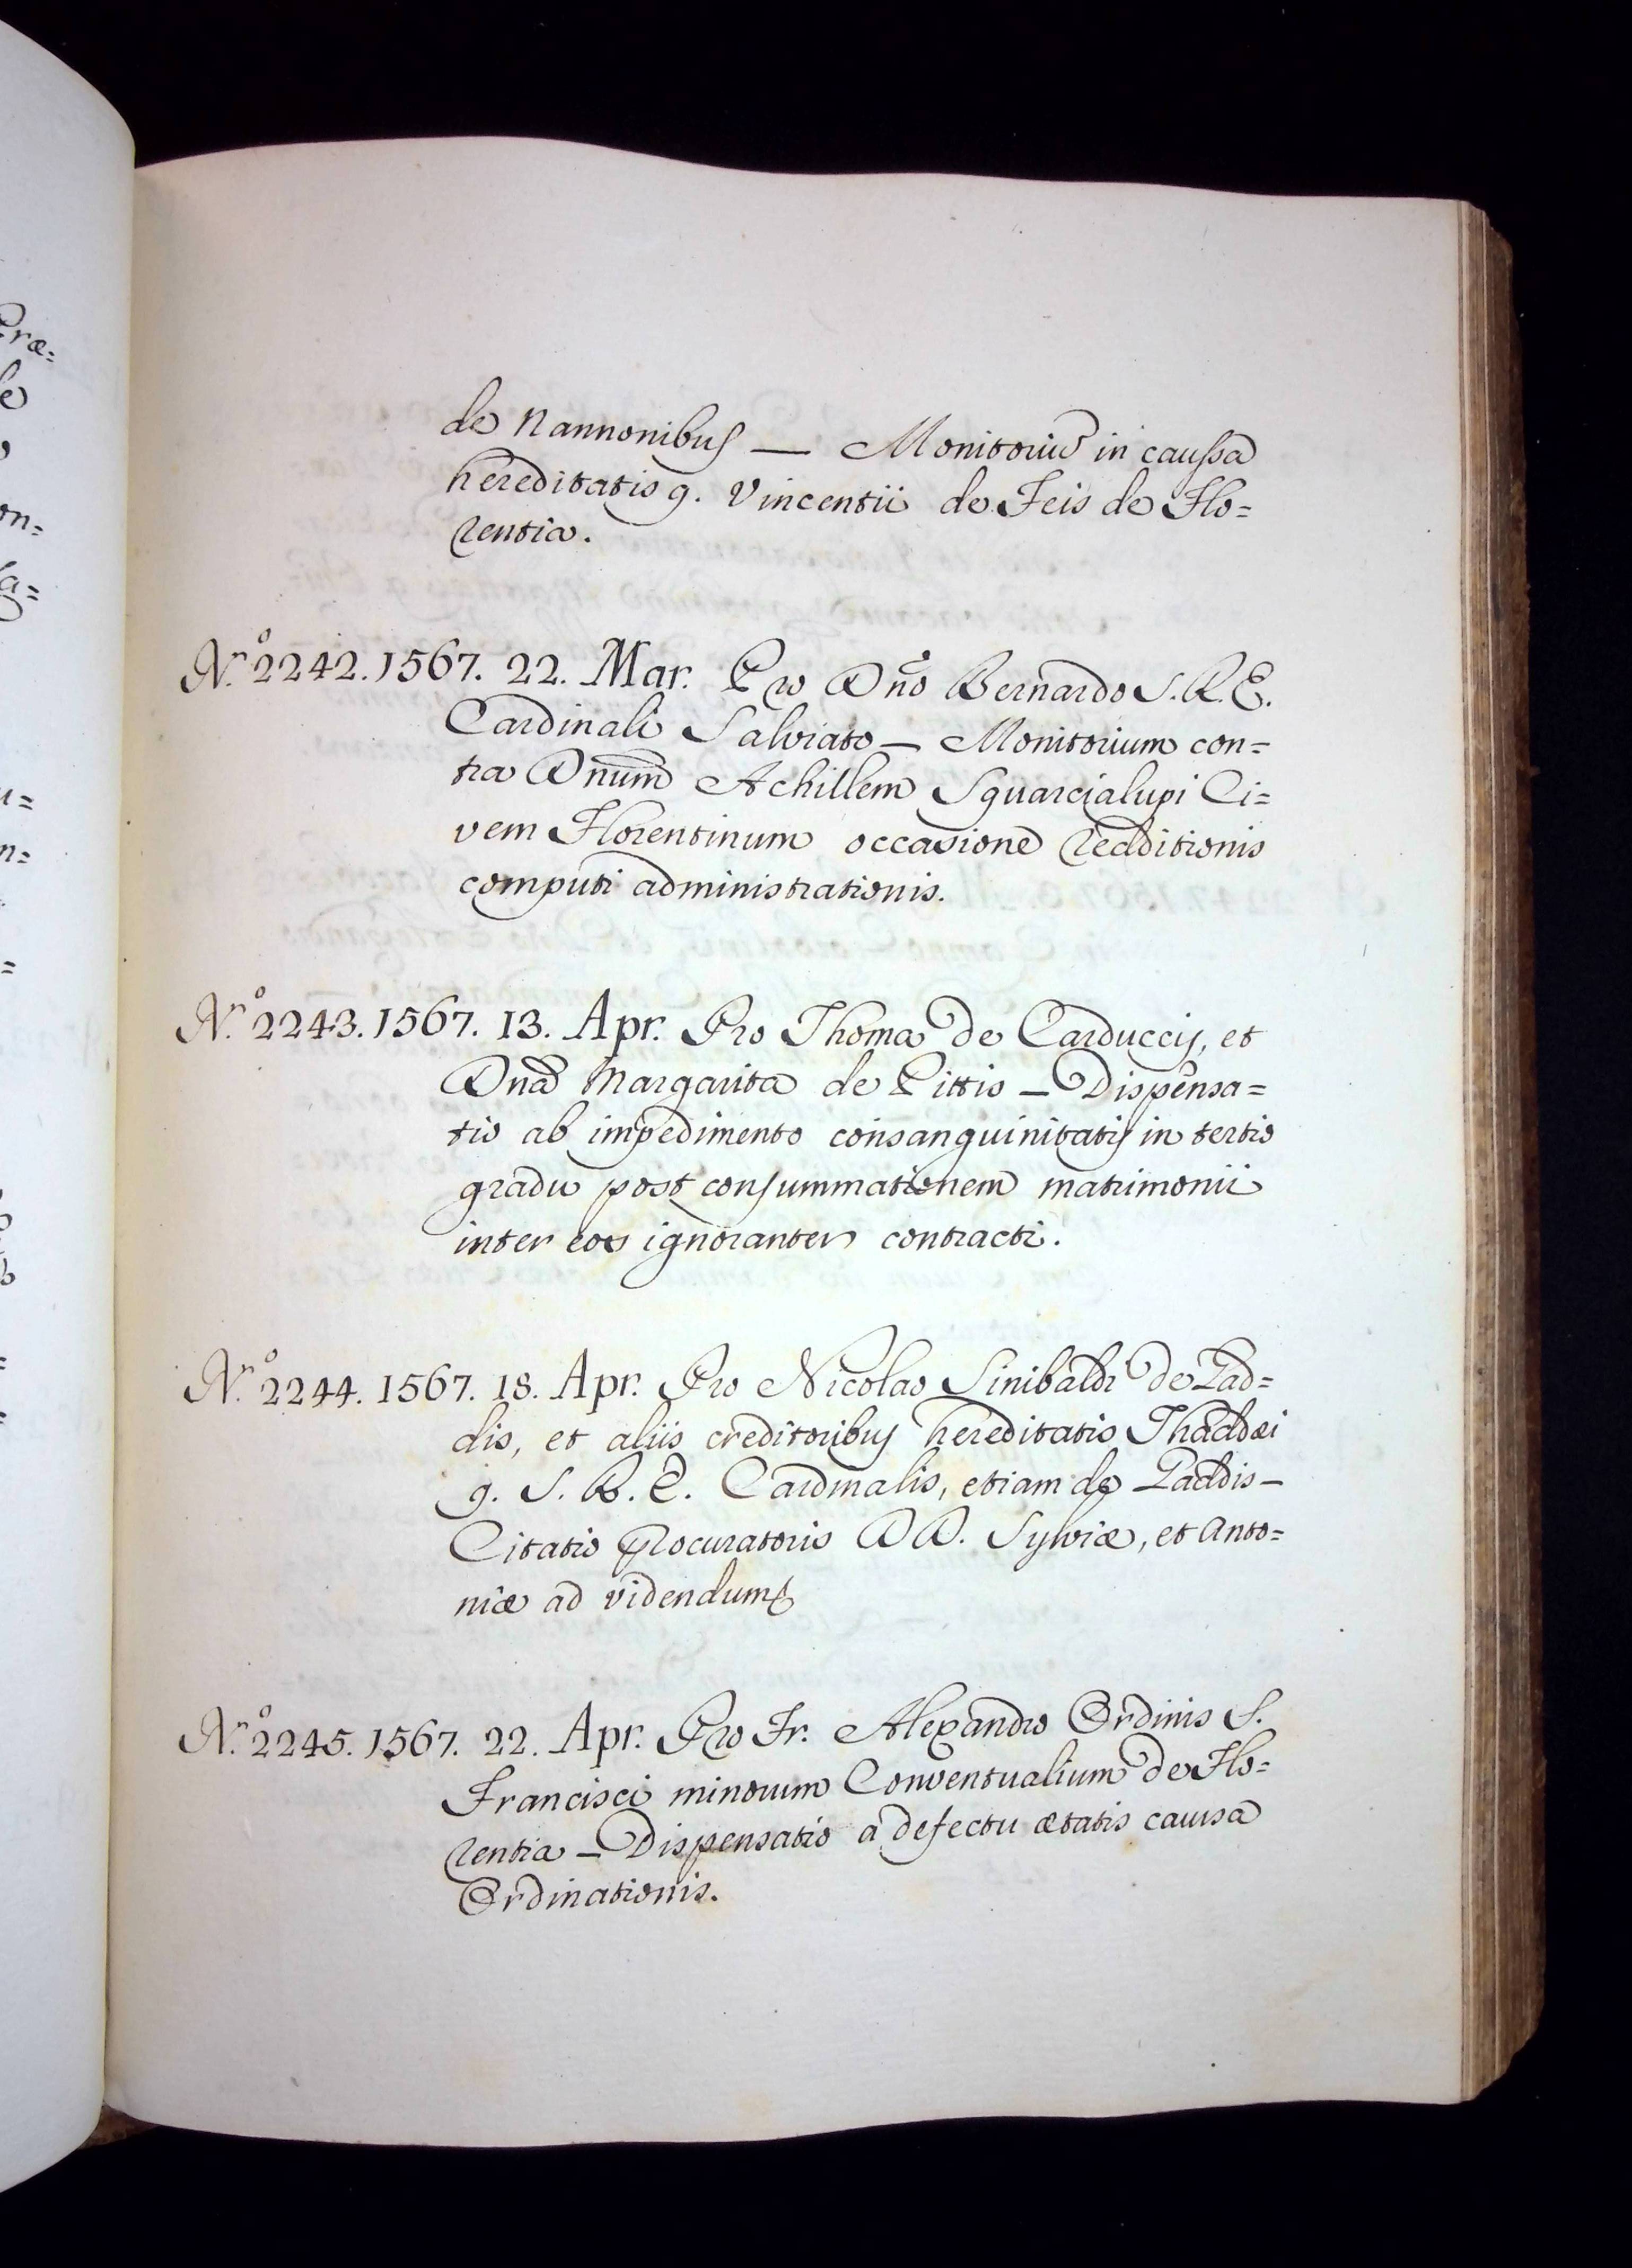 de Nannonibus — Monitoriũ in caussa
hereditatis q. Vincentii de Feis de Flo=
rentia.
N.º 2242. 1567. 22. Mar. Pro Dño Bernardo S. R. E.
Cardinali Salviato — Monitorium con=
tra Dnum Achillem Squarcialupi Ci=
vem Florentinum occasione redditionis
computi administrationis.
N.º 2243. 1567. 13. Apr. Pro Thoma de Carduccij, et
Dña Margarita de Pittis — Dispensa=
tio ab impedimento consanguinitatis in tertio
gradu post consummationem matrimonii
inter eos ignoranter contracti.
N.º 2244. 1567. 18. Apr. Pro Nicolao Sinibaldi de Gad=
dis, et aliis creditoribus hereditatis Thaddæi
q. S. R. E. Cardinalis, etiam de Gaddis —
Citatio Procuratoris DD. Sylviæ, et Anto=
niæ ad videndum &
N.º 2245. 1567. 22. Apr. Pro Fr. Alexandro Ordinis S.
Francisci minorum Conventualium de Flo=
rentia — Dispensatio a defectu ætatis causa
Ordinationis.